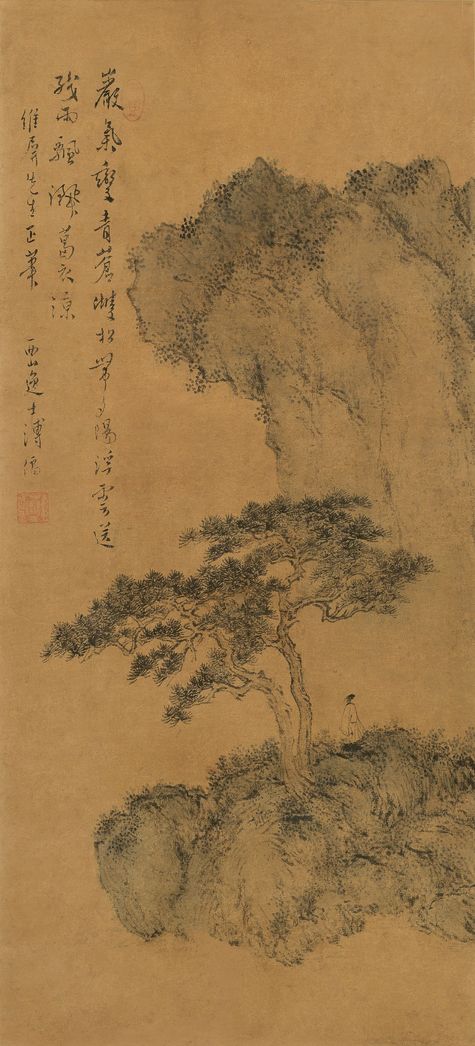 巖氣變青蒼雙松帶夕陽浮雲送
殘雨飄灑葛衣涼
維屏先生正
西山逸士溥儒